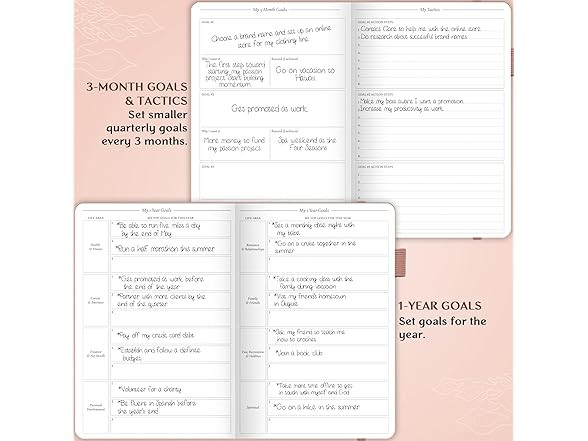 3-MONTH GOALS
& TACTICS
Set smaller
quarterly goals
every 3 months.
My 3 Month Goals
GOAL #1
Choose a brand name and set up an online
store for my clothing line
Why I want it
The first step toward
starting my passion
project. Start building
momentum
Reward (I achieved)
Go on vacation to
Hawaii
GOAL #2
Get promoted at work
Why I want it
More money to fund
my passion project
Reward (I achieved)
Spa weekend at the
Four Seasons
GOAL #3
My Tactics
GOAL #1 ACTION STEPS
Contact Clare to help me with the online store
Do research about successful brand names
GOAL #2 ACTION STEPS
Make my boss aware I want a promotion
Increase my productivity at work
GOAL #3 ACTION STEPS
My 1 Year Goals
LIFE AREA
MY TOP GOALS FOR THIS YEAR
Health
& Fitness
*Be able to run five miles a day
by the end of May
*Run a half marathon this summer
Career
& Business
*Get promoted at work before
the end of the year
*Partner with more clients by the
end of the quarter
Finance
*Pay off my credit card debt
*Establish and follow a definite
budget
Personal
Development
*Volunteer for a charity
*Be fluent in Spanish before
the year's end
My 1 Year Goals
LIFE AREA
MY TOP GOALS FOR THIS YEAR
Romance
& Relationships
*Set a monthly date night with
my babe
*Go on a cruise together in the
summer
Family
& Friends
*Take a cooking class with the
family during vacation
*Visit my friend's hometown
in August
Fun, Recreation
& Hobbies
*Ask my friend to teach me
how to crochet
*Join a book club
Spiritual
*Take more time offline to get
in touch with myself and God
*Go on a hike in the summer
1-YEAR GOALS
Set goals for the
year.